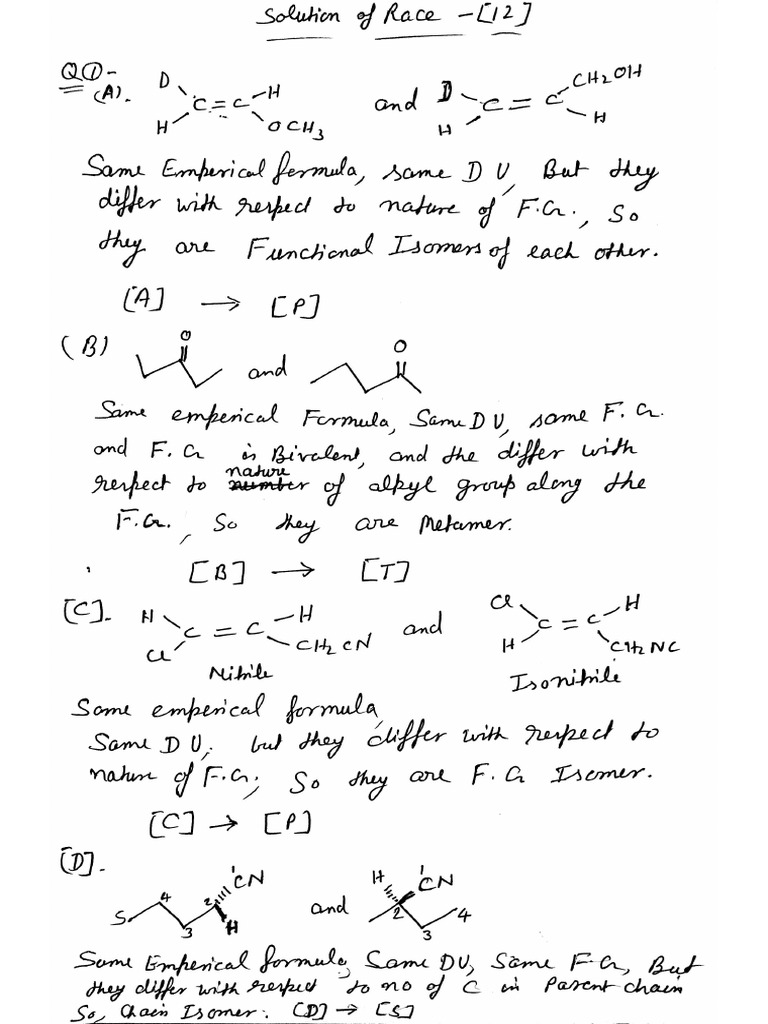 Solution of Race -[12]
Q①-
(A). D H C=C H OCH3 and D CH2OH C=C H H
Same Emperical formula, same D U, But they
differ with respect to nature of F.G., So
they are Functional Isomers of each other.
[A] → [P]
(B) O and O
Same emperical Formula, Same D U, same F. G.
and F. G is Bivalent, and the differ with
nature
respect to number of alkyl group along the
F.G., So they are Metamer.
[B] → [T]
[C]. H H C=C Cl CH2CN and Cl H C=C H CH2NC
Nitrile Isonitrile
Same emperical formula,
Same D U, but they differ with respect to
nature of F.G., So they are F. G Isomer.
[C] → [P]
[D].
5 4 3 2 1 CN H and H 1 CN 2 3 4
Same Emperical formula, Same DU, Same F G, But
they differ with respect to no of C in Parent chain
So, Chain Isomer. [D] → [S]